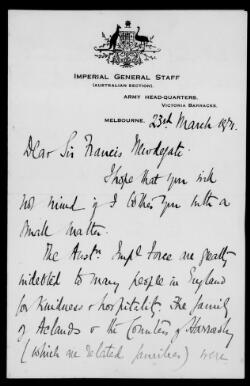 IMPERIAL GENERAL STAFF
(AUSTRALIAN SECTION).
ARMY HEAD-QUARTERS,
VICTORIA BARRACKS,
MELBOURNE, 23rd March 1921.
Dear Sir Francis Newdegate.
I hope that you will
not mind if I bother you with a
small matter.
The Austn. Impl Force are greatly
indebted to many people in England
for kindness & hospitality. The family
of Aclands & the Countess of
(which are related families) were